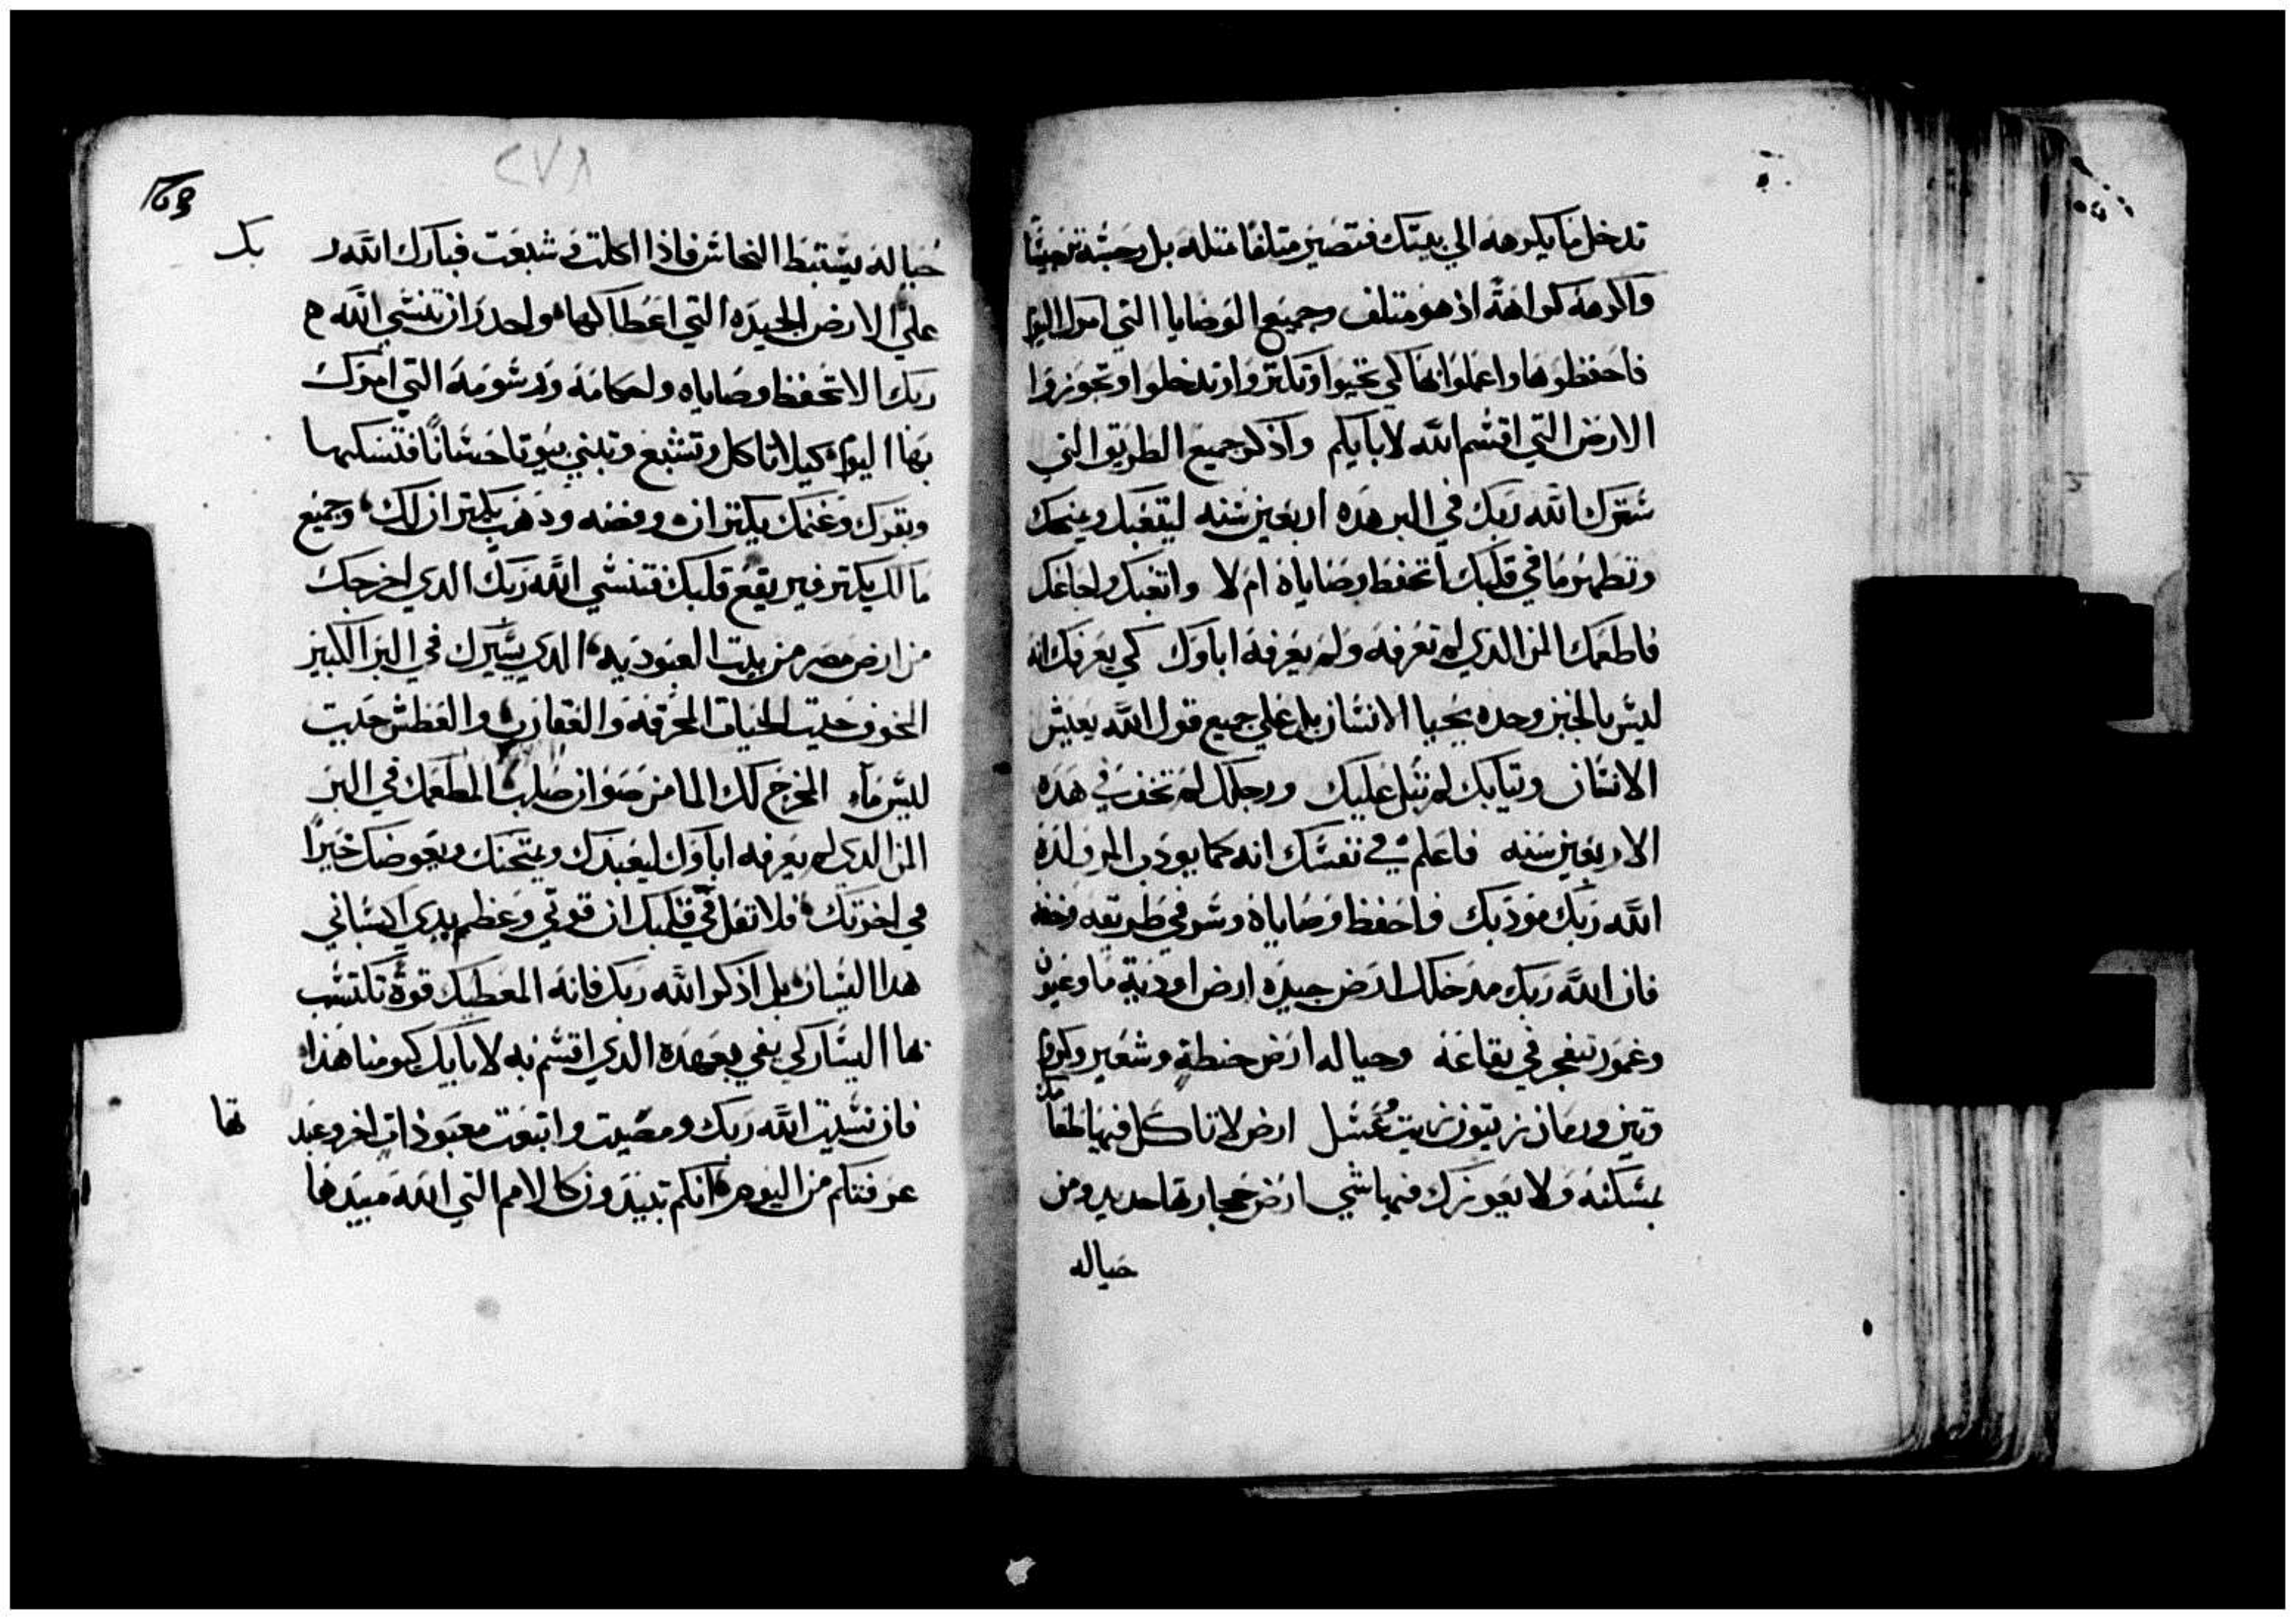 تدخل ما يكرهه الي بيتك فتصير متلفا متله بل وحشه توحيشا
واكرهه كراهة اذ هو متلف وجميع الوصايا التي امرك اليوم
فاحفظوها واعملوا بها كي تحيوا وتكتروا وتدخلوا وتحوزوا
الارض التي اقسم الله لابايكم واذكر جميع الطريق التي
سيرك الله ربك في البر هده اربعين سنه ليتعبك ويمنحك
وتظهر ما في قلبك اتحفظ وصاياه ام لا واتعبك واجاعك
فاطعمك المن الدي لم تعرفه ولم يعرفه اباوك كي يعرفك انه
ليس بالخبز وحده يحيا الانسان بل علي جميع قول الله يعيش
الانسان وتيابك لم تبل عليك ورجلك لم تحف في هده
الاربعين سنه فاعلم في نفسك انه كما يودب المر ولده
الله ربك مودبك فاحفظ وصاياه وسر في طريقه وخفه
فان الله ربك مدخلك ارض جيده ارض اودية ما وعيون
وغمور تنفجر في بقاعه وجباله ارض حنطة وشعير وكروم
وتين ورمان زيتون زيت وعسل ارض لا تاكل فيها طعامك
بمسكنه ولا يعوزك فيها شي ارض حجارتها حديد ومن
جباله
٢٧٨
169
جباله يستنبط النحاس فاذا اكلت وشبعت فبارك الله ربك
علي الارض الجيده التي اعطاكها واحدر ان تنسي الله
ربك الا تحفظ وصاياه واحكامه ورسومه التي امرك
بها اليوم كيلا تاكل وتشبع وتبني بيوتا حسانا فتسكنها
وبقرك وغنمك يكتران وفضه ودهب يكتران لك وجميع
مالك يكتر فيرتفع قلبك فتنسي الله ربك الدي اخرجك
من ارض مصر من بيت العبوديه الدي سيرك في البر الكبير
المخوف حيت الحيات المحرقه والعقارب والعطش حيت
ليس ماء المخرج لك الما من صوان صلب المطعمك في البر
المن الدي لم يعرفه اباوك ليعبدك ويمتحنك ويعوضك خيرا
في اخرتك فلا تقل في قلبك ان قوتي وعظم يدي اكسباني
هدا اليسار بل اذكر الله ربك فانه المعطيك قوة تكتسب
بها اليسار كي يفي بعهده الدي اقسم به لابايك كيومنا هذا
فان نسيت الله ربك ومضيت واتبعت معبودات اخر وعبدتها
عرفتكم من اليوم انكم تبيدون كالامم التي الله مبيدها